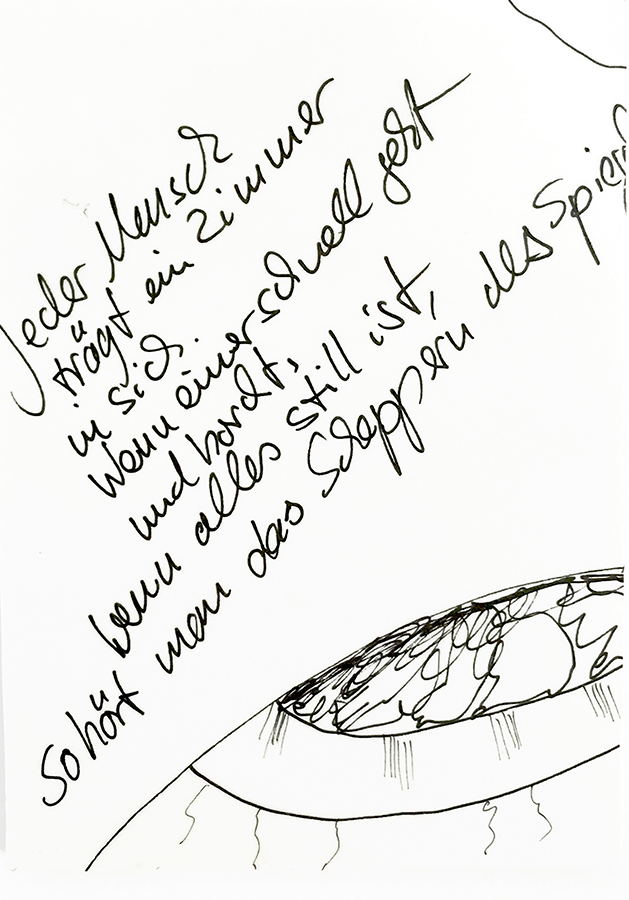 Jeder Mensch
trägt ein Zimmer
in sich.
Wenn einer schnell geht
und horcht,
wenn alles still ist,
so hört man das Scheppern des Spie